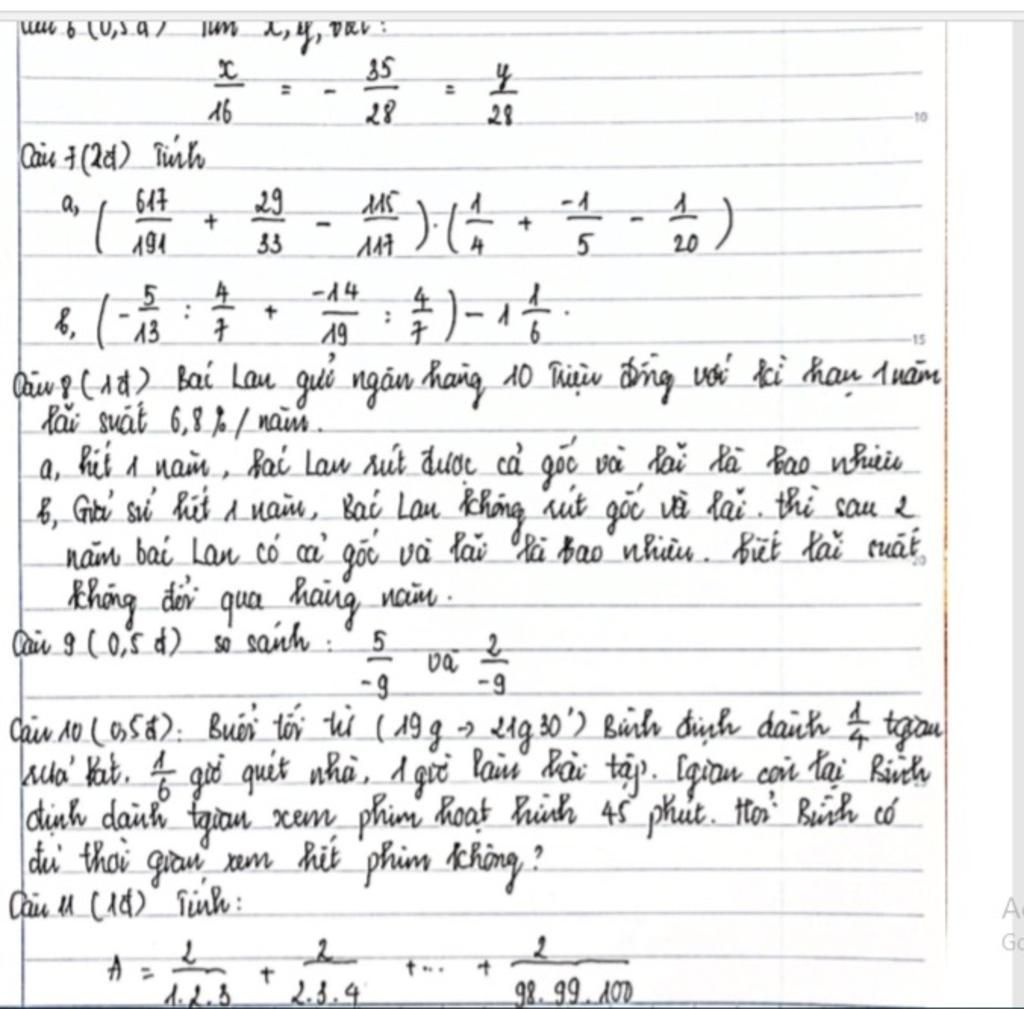 Câu 6 (0,5đ) Tìm x, y, biết:
x/16 = - 35/28 = y/28
Câu 7 (2đ) Tính
a, (617/191 + 29/33 - 115/117) . (1/4 + -1/5 - 1/20)
b, (-5/13 : 4/7 + -14/19 : 4/7) - 1 1/6.
Câu 8 (1đ) Bác Lan gửi ngân hàng 10 Triệu đồng với kì hạn 1 năm
lãi suất 6,8%/năm.
a, hết 1 năm, bác Lan rút được cả gốc và lãi là bao nhiêu
b, Giả sử hết 1 năm, Bác Lan không rút gốc và lãi. thì sau 2
năm bác Lan có cả gốc và lãi là bao nhiêu. biết lãi suất
không đổi qua hàng năm.
Câu 9 (0,5đ) so sánh: 5/-9 và 2/-9
Câu 10 (0,5đ): Buổi tối từ (19g → 21g30') Bình định dành 1/4 tgian
rửa bát, 1/6 giờ quét nhà, 1 giờ làm bài tập. Tgian còn lại Bình
định dành tgian xem phim hoạt hình 45 phút. Hỏi Bình có
đủ thời gian xem hết phim không?
Câu 11 (1đ) Tính:
A = 2/1.2.3 + 2/2.3.4 + ... + 2/98.99.100
10
15
20